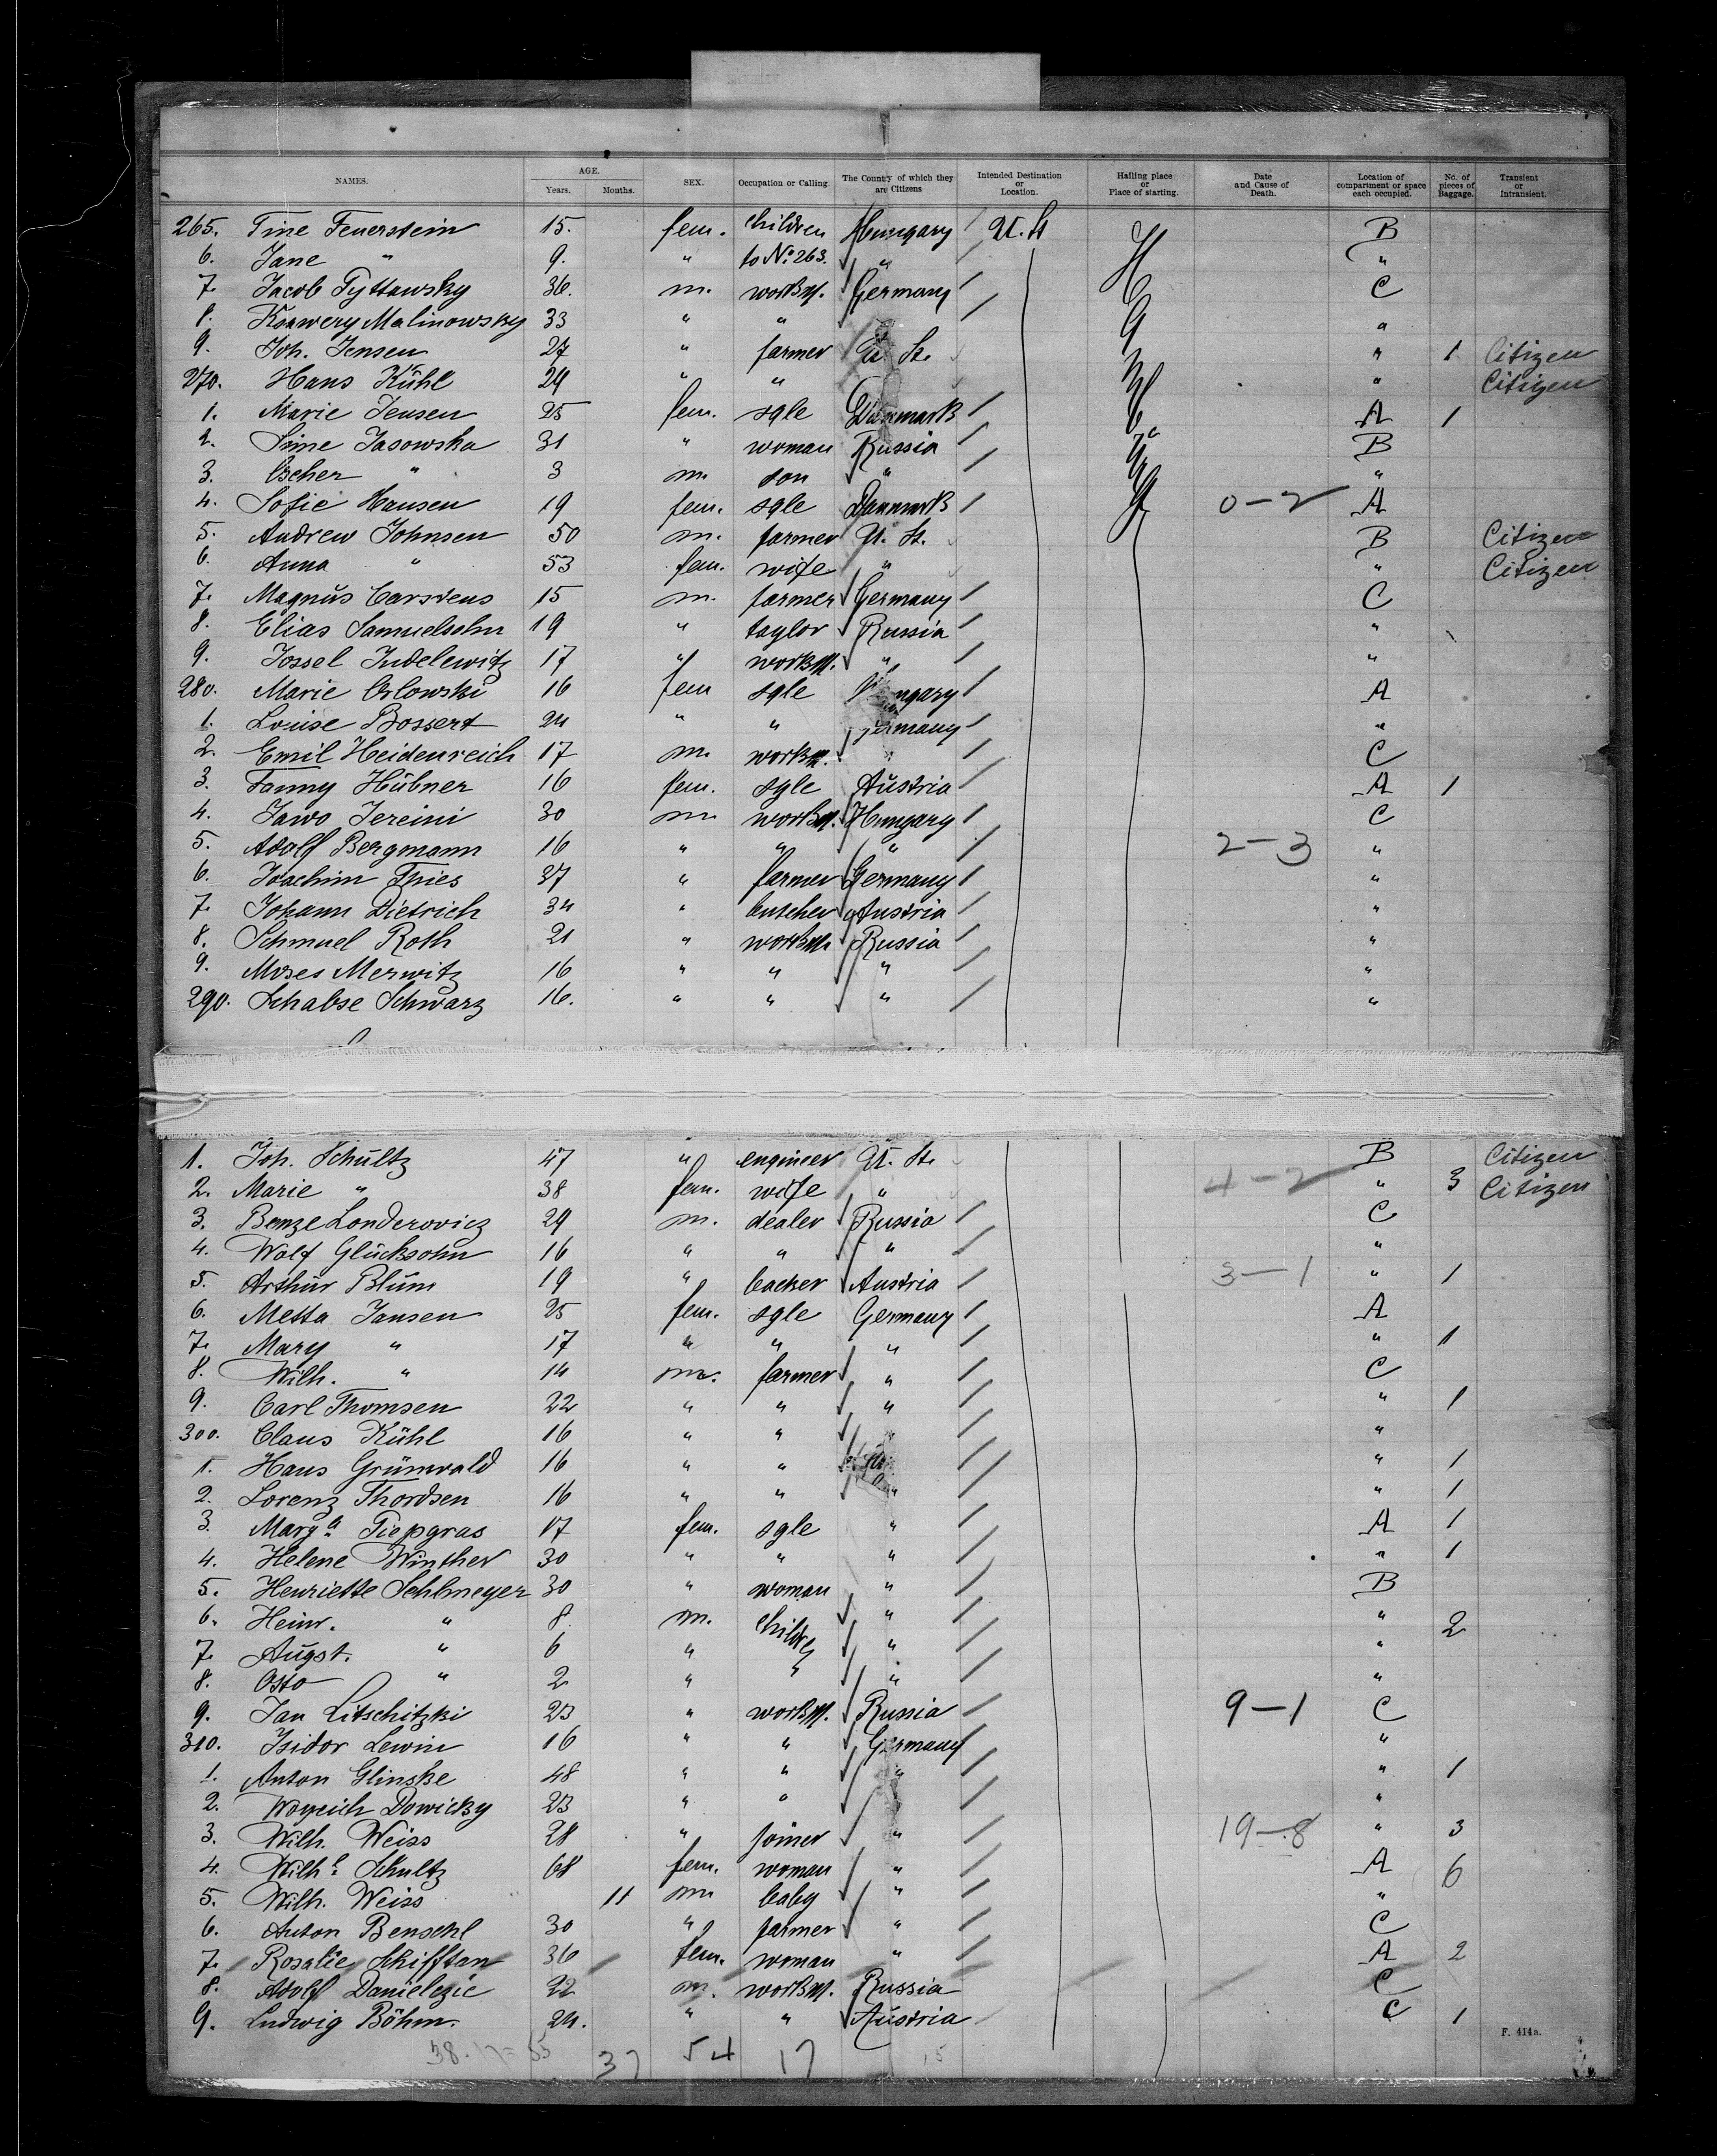 NAMES. AGE. Years. Months. SEX. Occupation or Calling. The Country of which they are Citizens Intended Destination or Location. Hailing place or Place of starting. Date and Cause of Death. Location of compartment or space each occupied. No. of pieces of Baggage. Transient or Intransient.
265. Tine Feuerstein 15. fem. children Hungary U. St B
6. Jane " 9. " to No. 263. " "
7. Jacob 36. m. workm. Germany C
8. Malinowsky 33 " " "
9. Joh. Jensen 27 " farmer U. St. " 1 Citizen
270. Hans Kühl 29 " " " Citizen
1. Marie Jensen 25 fem. sgle Danmark A 1
2. Sime Jasowska 31 " woman Russia B
3. Ascher " 3 m. son " "
4. Sofie Hansen 19 fem. sgle Danmark 0-2 A
5. Andrew Johnsen 50 m. farmer U. St. B Citizen
6. Anna " 53 fem. wife " " Citizen
7. Magnus Carstens 15 m. farmer Germany C
8. Elias Samuelsohn 19 " taylor Russia "
9. Jossel Judelewitz 17 " workm. " "
280. Marie Orlowski 16 fem sgle Hungary A
1. Louise Bossert 24 " " Germany "
2. Emil Heidenreich 17 m. workm. C
3. Fanny Hübner 16 fem. sgle Austria A 1
4. Jawo Jereini 30 m workm. Hungary C
5. Adolf Bergmann 16 " " " 2-3 "
6. Joachim Thies 37 " farmer Germany "
7. Johann Dietrich 34 " butcher Austria "
8. Schmuel Roth 21 " workm Russia "
9. Moses Merwitz 16 " " " "
290. Schabse Schwarz 16. " " " "
1. Joh. Schultz 47 " engineer U. St. B Citizen
2. Marie " 38 fem. wife " 4-2 " 3 Citizen
3. Benze Londerovicz 29 m. dealer Russia C
4. Wolf Glücksohn 16 " " " "
5. Arthur Blum 19 " backer Austria 3-1 " 1
6. Metta Jansen 25 fem. sgle Germany A
7. Mary " 17 " " " " 1
8. Wilh. " 14 m. farmer " C
9. Carl Thomsen 22 " " " " 1
300. Claus Kühl 16 " " " "
1. Hans Grünwald 16 " " " 1
2. Lorenz Thordsen 16 " " " " 1
3. Marga Tiepgras 17 fem. sgle " A 1
4. Helene Winther 30 " " " 1
5. Henriette Sehlmeyer 30 " woman " B
6. Heinr. " 8 m. childre " " 2
7. Augst. " 6 " " "
8. Otto " 2 " " " "
9. Jan Litschitzki 23 " workm. Russia 9-1 C
310. Isidor Lewin 16 " " Germany "
1. Anton Glinske 48 " " " " 1
2. Woyceich Dowicky 23 " " "
3. Wilh. Weiss 28 " joiner " 19-8 " 3
4. Wilhe. Schultz 68 fem. woman " A 6
5. Wilh. Weiss 11 m baby " "
6. Anton Benschl 30 " farmer " C
7. Rosalie Schifftan 36 fem. woman " A 2
8. Adolf Danielezic 22 m. workm. Russia C
9. Ludwig Böhm. 24. " " Austria C 1
F. 414a.
38. 17 = 55 37 54 17 15